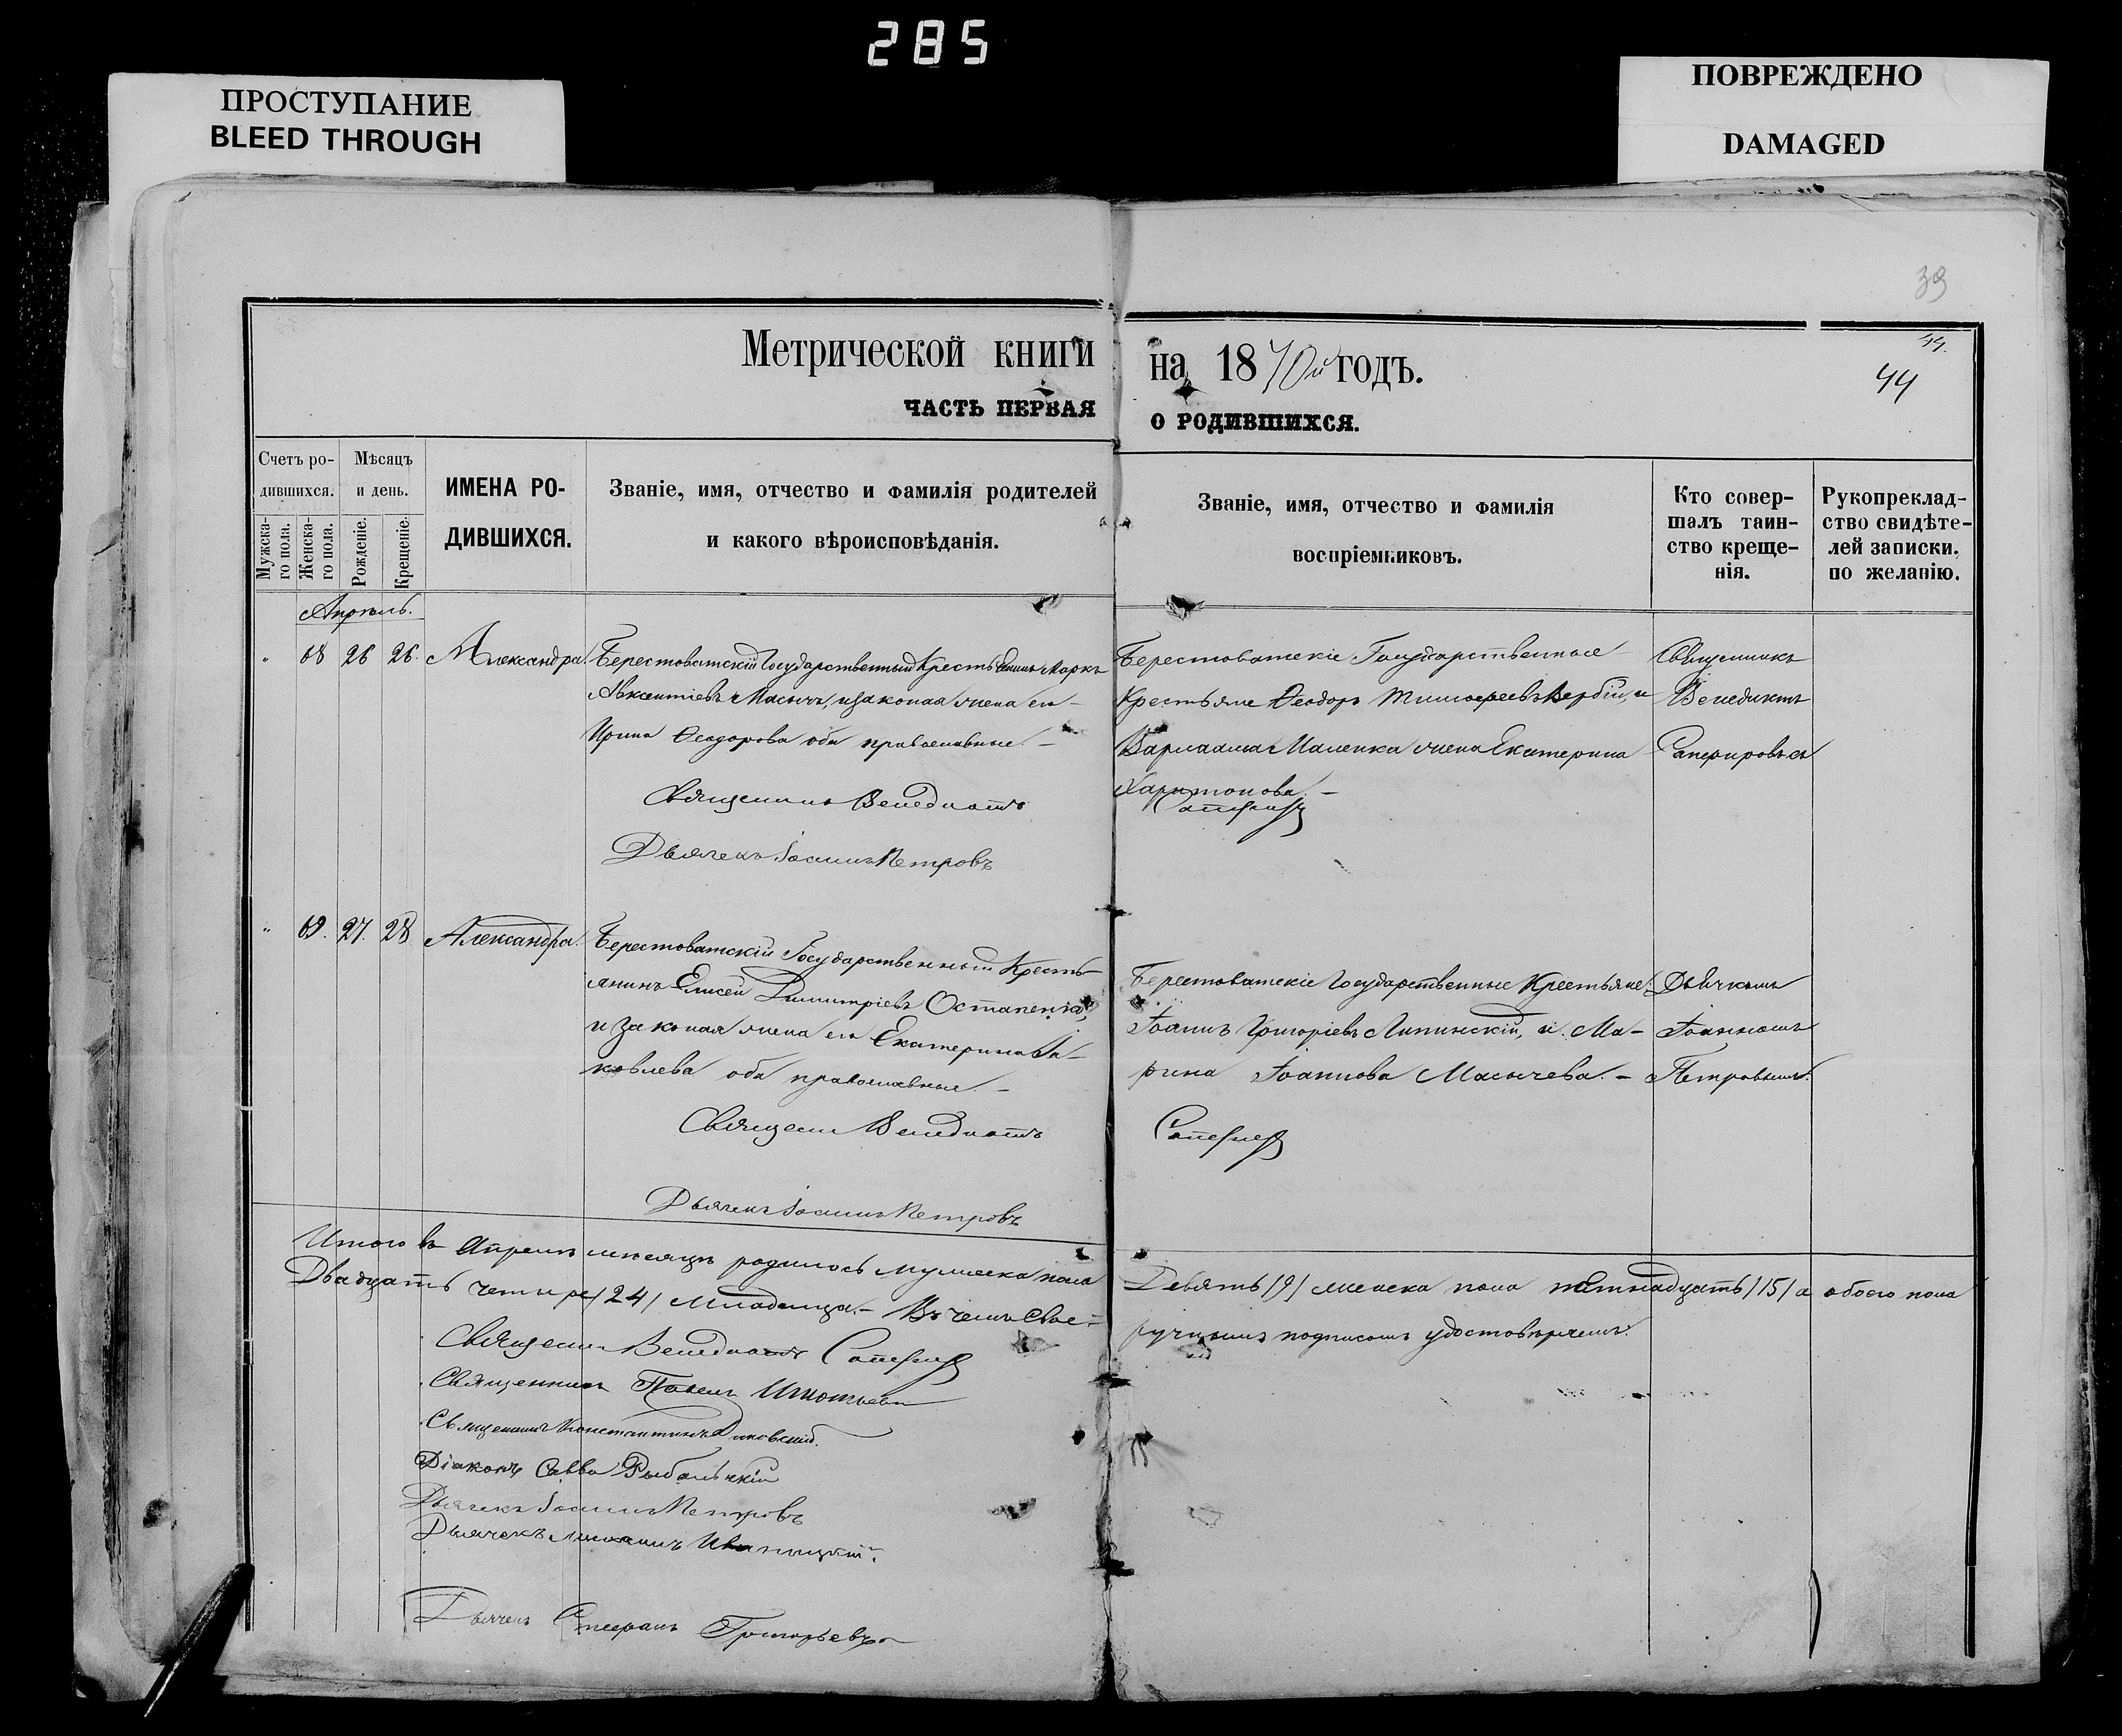 285
ПРОСТУПАНИЕ
BLEED THROUGH
ПОВРЕЖДЕНО
DAMAGED
39
44.
44
Метрической книги на 1870й годъ.
ЧАСТЬ ПЕРВАЯ О РОДИВШИХСЯ.
Счетъ ро-
дившихся.
Мужска-
го пола.
Женска-
го пола.
Мѣсяцъ
и день.
Рожденіе.
Крещеніе.
ИМЕНА РО-
ДИВШИХСЯ.
Званіе, имя, отчество и фамилія родителей
и какого вѣроисповѣданія.
Званіе, имя, отчество и фамилія
воспріемниковъ.
Кто совер-
шалъ таин-
ство креще-
нія.
Рукопреклад-
ство свидѣте-
лей записки.
по желанію.
Апрель.
" 68 26 26. Александра.
Берестоватскій Государственный Крестьянинъ Маркъ
Авксентіевъ Масычъ, и законая жена его
Ирина Ѳеодорова оба православные. –
Священникъ Венедиктъ
Дьячекъ Іоаннъ Петровъ
Берестоватскіе Государственные
Крестьяне Ѳеодоръ Тимоѳеевъ Вербій, и
Варлаама жена Екатерина
Харитонова. –
Священникъ
Венедиктъ
" 69. 27. 28 Александра.
Берестоватскій Государственный Кресть-
янинъ Елисей Димитріевъ Остапенко,
и законая жена его Екатерина Іа-
ковлева оба православные. –
Священн Венедиктъ
Дьячекъ Іоаннъ Петровъ
Берестоватскіе Государственные Крестьяне:
Іоаннъ Григоріевъ Липинскій, и Ма-
рина Іоаннова Масычева. –
Дьячкомъ
Іоанномъ
Петровымъ.
Итого въ Апреле месяце родилось мужеска пола
Двадцать четыре /24/ Младенца. – Въ чемъ свое-
Девять /9/ женска пола пятнадцать /15/ а обоего пола
ручнымъ подписомъ удостоверяемъ.
Священн Венедиктъ
Священникъ Павелъ
Священникъ Константинъ
Діаконъ Савва Рыбальскій
Дьячекъ Іоаннъ Петровъ
Дьячекъ
Дьячекъ Григорьевъ